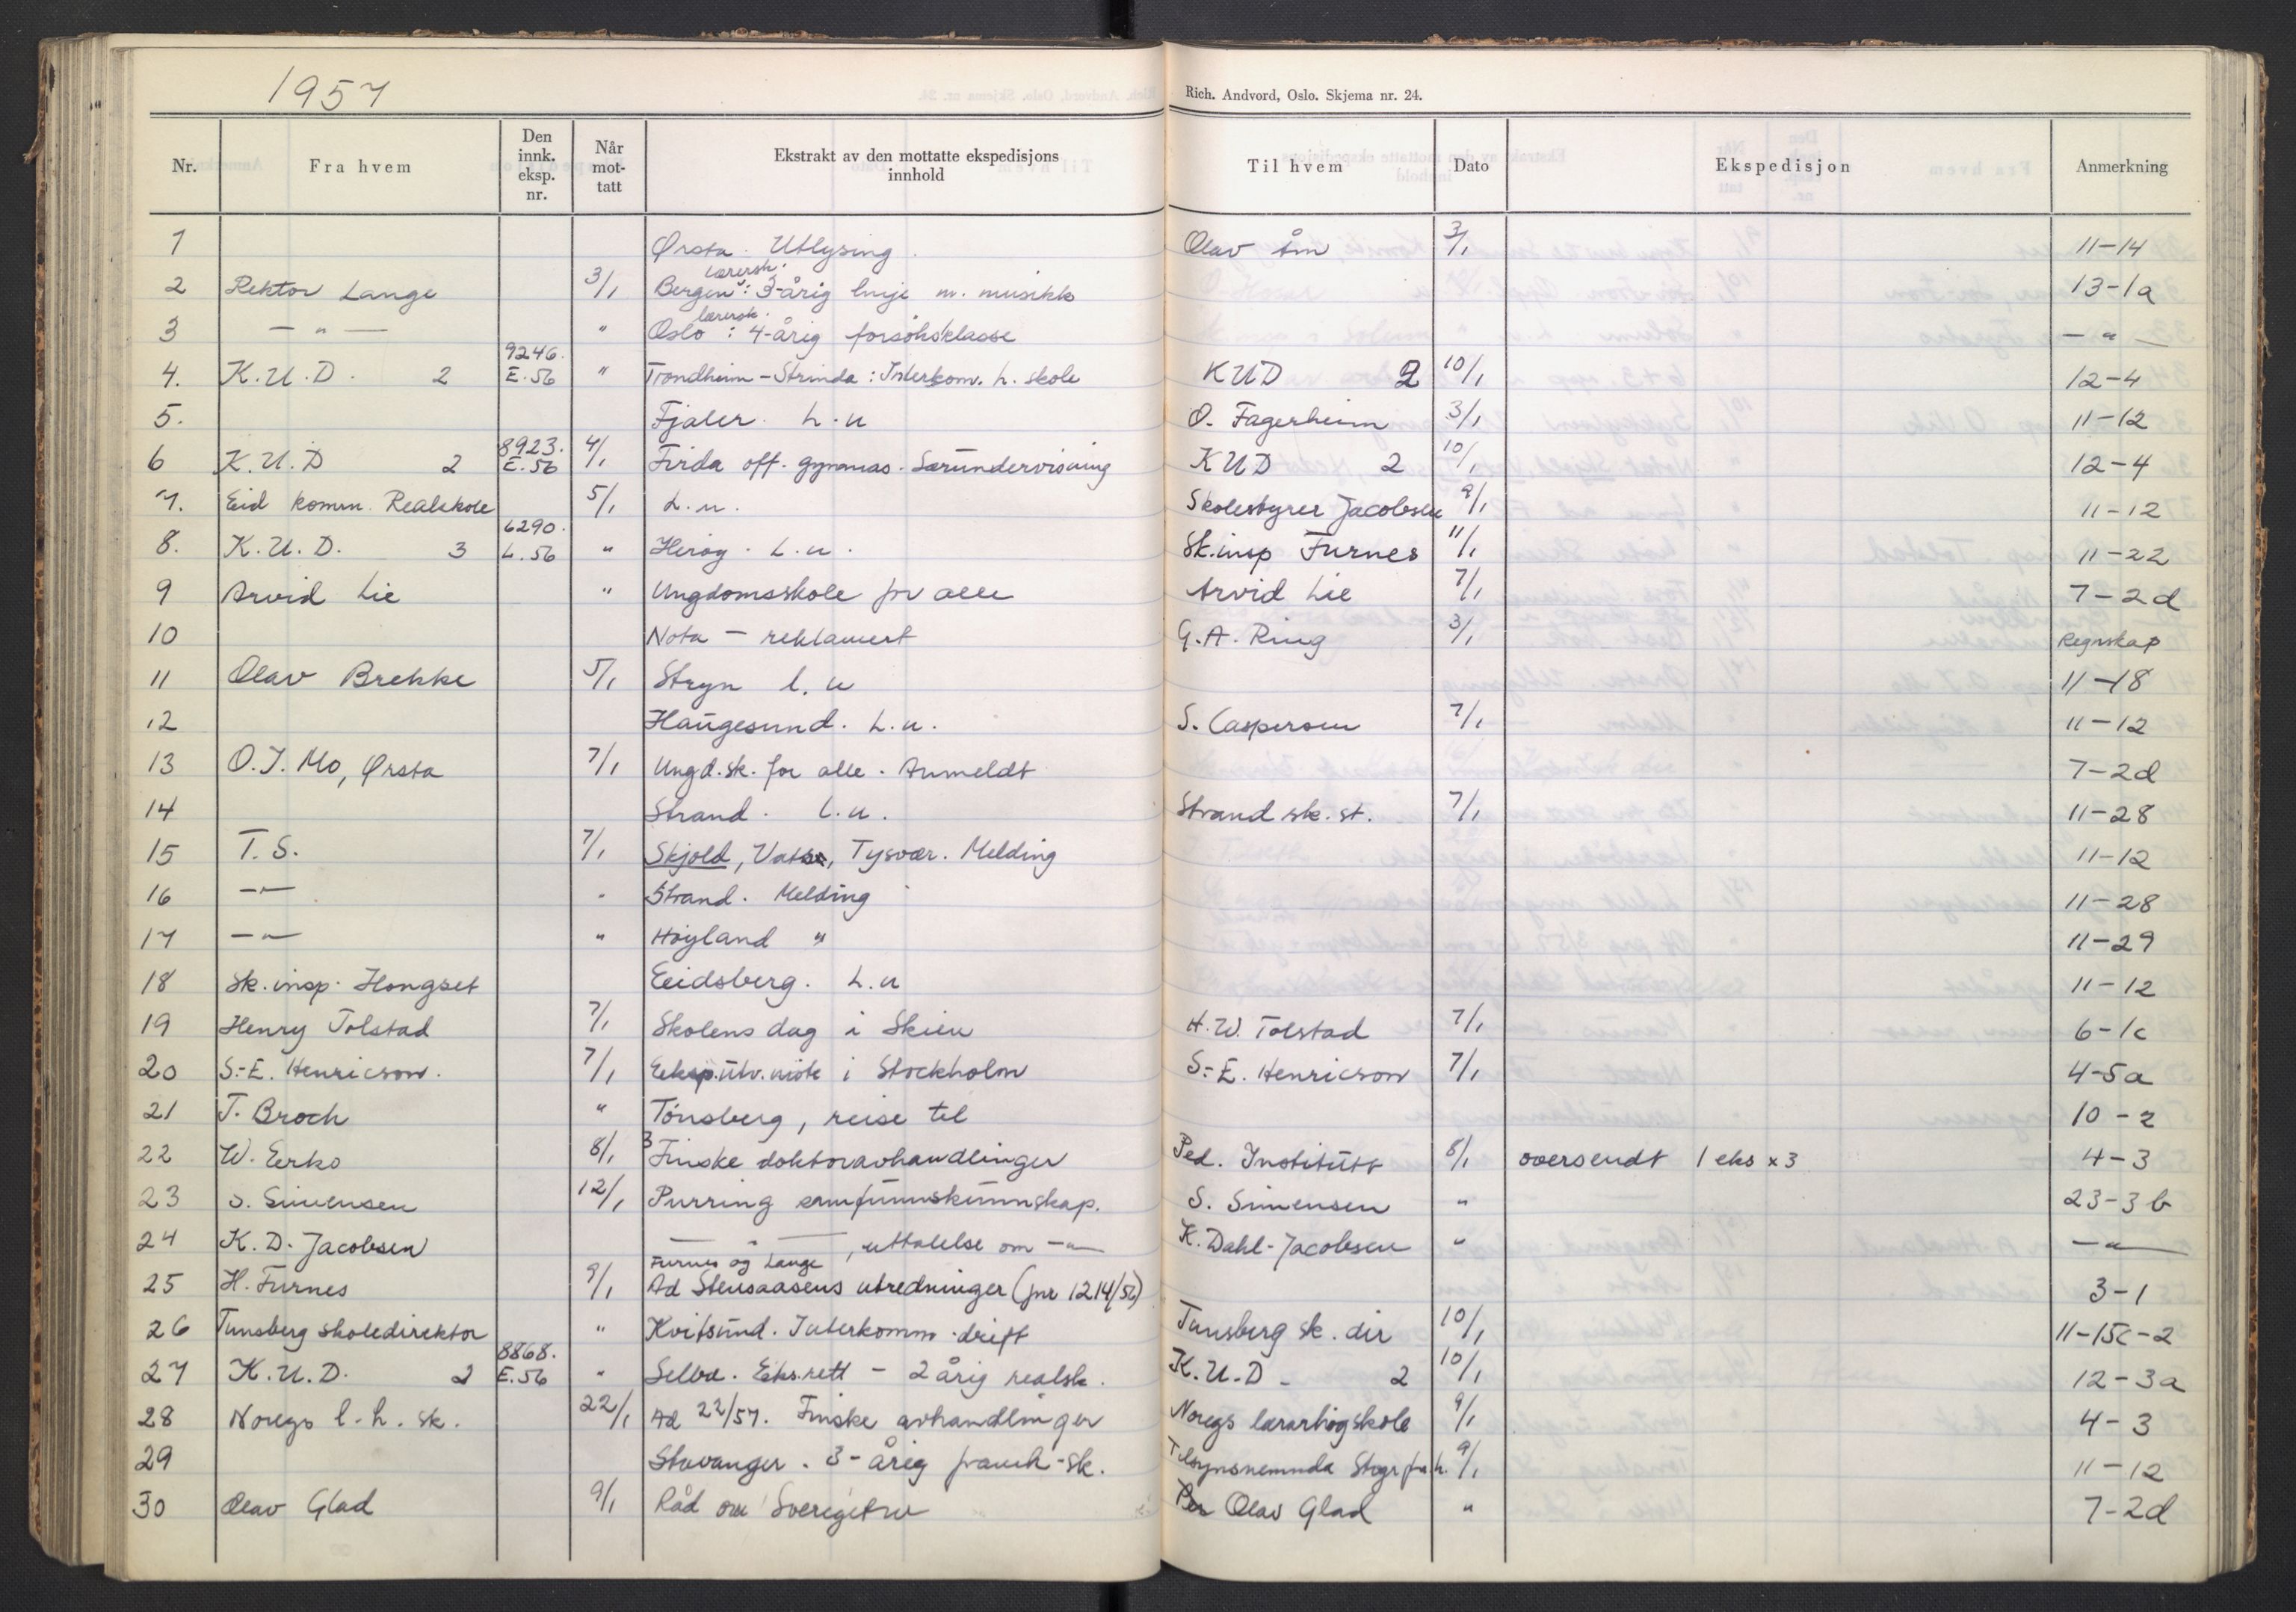 1957
Rich. Andvord, Oslo. Skjema nr. 24.
Nr. Fra hvem Den innk. eksp. nr. Når mot-tatt Ekstrakt av den mottatte ekspedisjons innhold Til hvem Dato Ekspedisjon Anmerkning
1 Ørsta. Utlysing. Olav Åm 3/1 11-14
2 Rektor Lange 3/1 Bergen lærersk.: 3-årig linje m. musikk 13-1a
3 — " — " Oslo lærersk.: 4-årig forsøksklasse — " —
4. K.U.D. 2 9246. E.56 " Trondheim - Strinda: Interkom. h. skole KUD 2 10/1 12-4
5. Fjaler. L.u O. Fagerheim 3/1 11-12
6 K.U.D 2 8923. E.56 4/1 Firda off. gymnas. Særundervisning KUD 2 10/1 12-4
7. Eid komm. Realskole 5/1 L.u. Skolestyrer Jacobsen 9/1 11-12
8. K.U.D. 3 6290. L.56 " Herøy. L.u. Sk.insp Furnes 11/1 11-22
9 Arvid Lie " Ungdomsskole for alle Arvid Lie 7/1 7-2d
10 Nota - reklamert G.A. Ring 3/1 Regnskap
11 Olav Brekke 5/1 Stryn l.u 11-18
12 Haugesund. L.u. S. Caspersen 7/1 11-12
13 O.J. Mo, Ørsta 7/1 Ungd.sk. for alle. Anmeldt 7-2d
14 Strand. L.u. Strand sk.st. 7/1 11-28
15 T.S. 7/1 Skjold, Vats, Tysvær. Melding 11-12
16 —"— " Strand. Melding 11-28
17 —"— " Høyland " 11-29
18 Sk.insp. Hongset Eidsberg. L.u 11-12
19 Henry Tolstad 7/1 Skolens dag i Skien H.W. Tolstad 7/1 6-1c
20 S.-E. Henricson. 7/1 Eksp.utv.møte i Stockholm S.-E. Henricson 7/1 4-5a
21 T. Broch " Tønsberg, reise til 10-2
22 W. Eerko 8/1 3 Finske doktoravhandlinger Ped. Institutt 8/1 oversendt 1 eks x 3 4-3
23 S. Simensen 12/1 Purring samfunnskunnskap. S. Simensen " 23-3b
24 K.D. Jacobsen — " —, uttalelse om —"— K. Dahl-Jacobsen " —"—
25 H. Furnes 9/1 Furnes og Lange Ad Stensaasens utredninger (jnr 1214/56) 3-1
26 Tunsberg skoledirektør " Kvitsund. Interkomm. drift Tunsberg sk. dir 10/1 11-15c-2
27 K.U.D. 2 8868. E.56 " Selbu. Eks.rett - 2 årig realsk. K.U.D. 2 10/1 12-3a
28 Noregs l.h.sk. 22/1 Ad 22/57. Finske avhandlinger Noregs lærarhøgskole 9/1 4-3
29 Stavanger. 3-årig framh-sk. Tilsynsnemnda Stvgr frh. 9/1 11-12
30 Olav Glad 9/1 Råd om Sverigetur Olav Glad " 7-2d